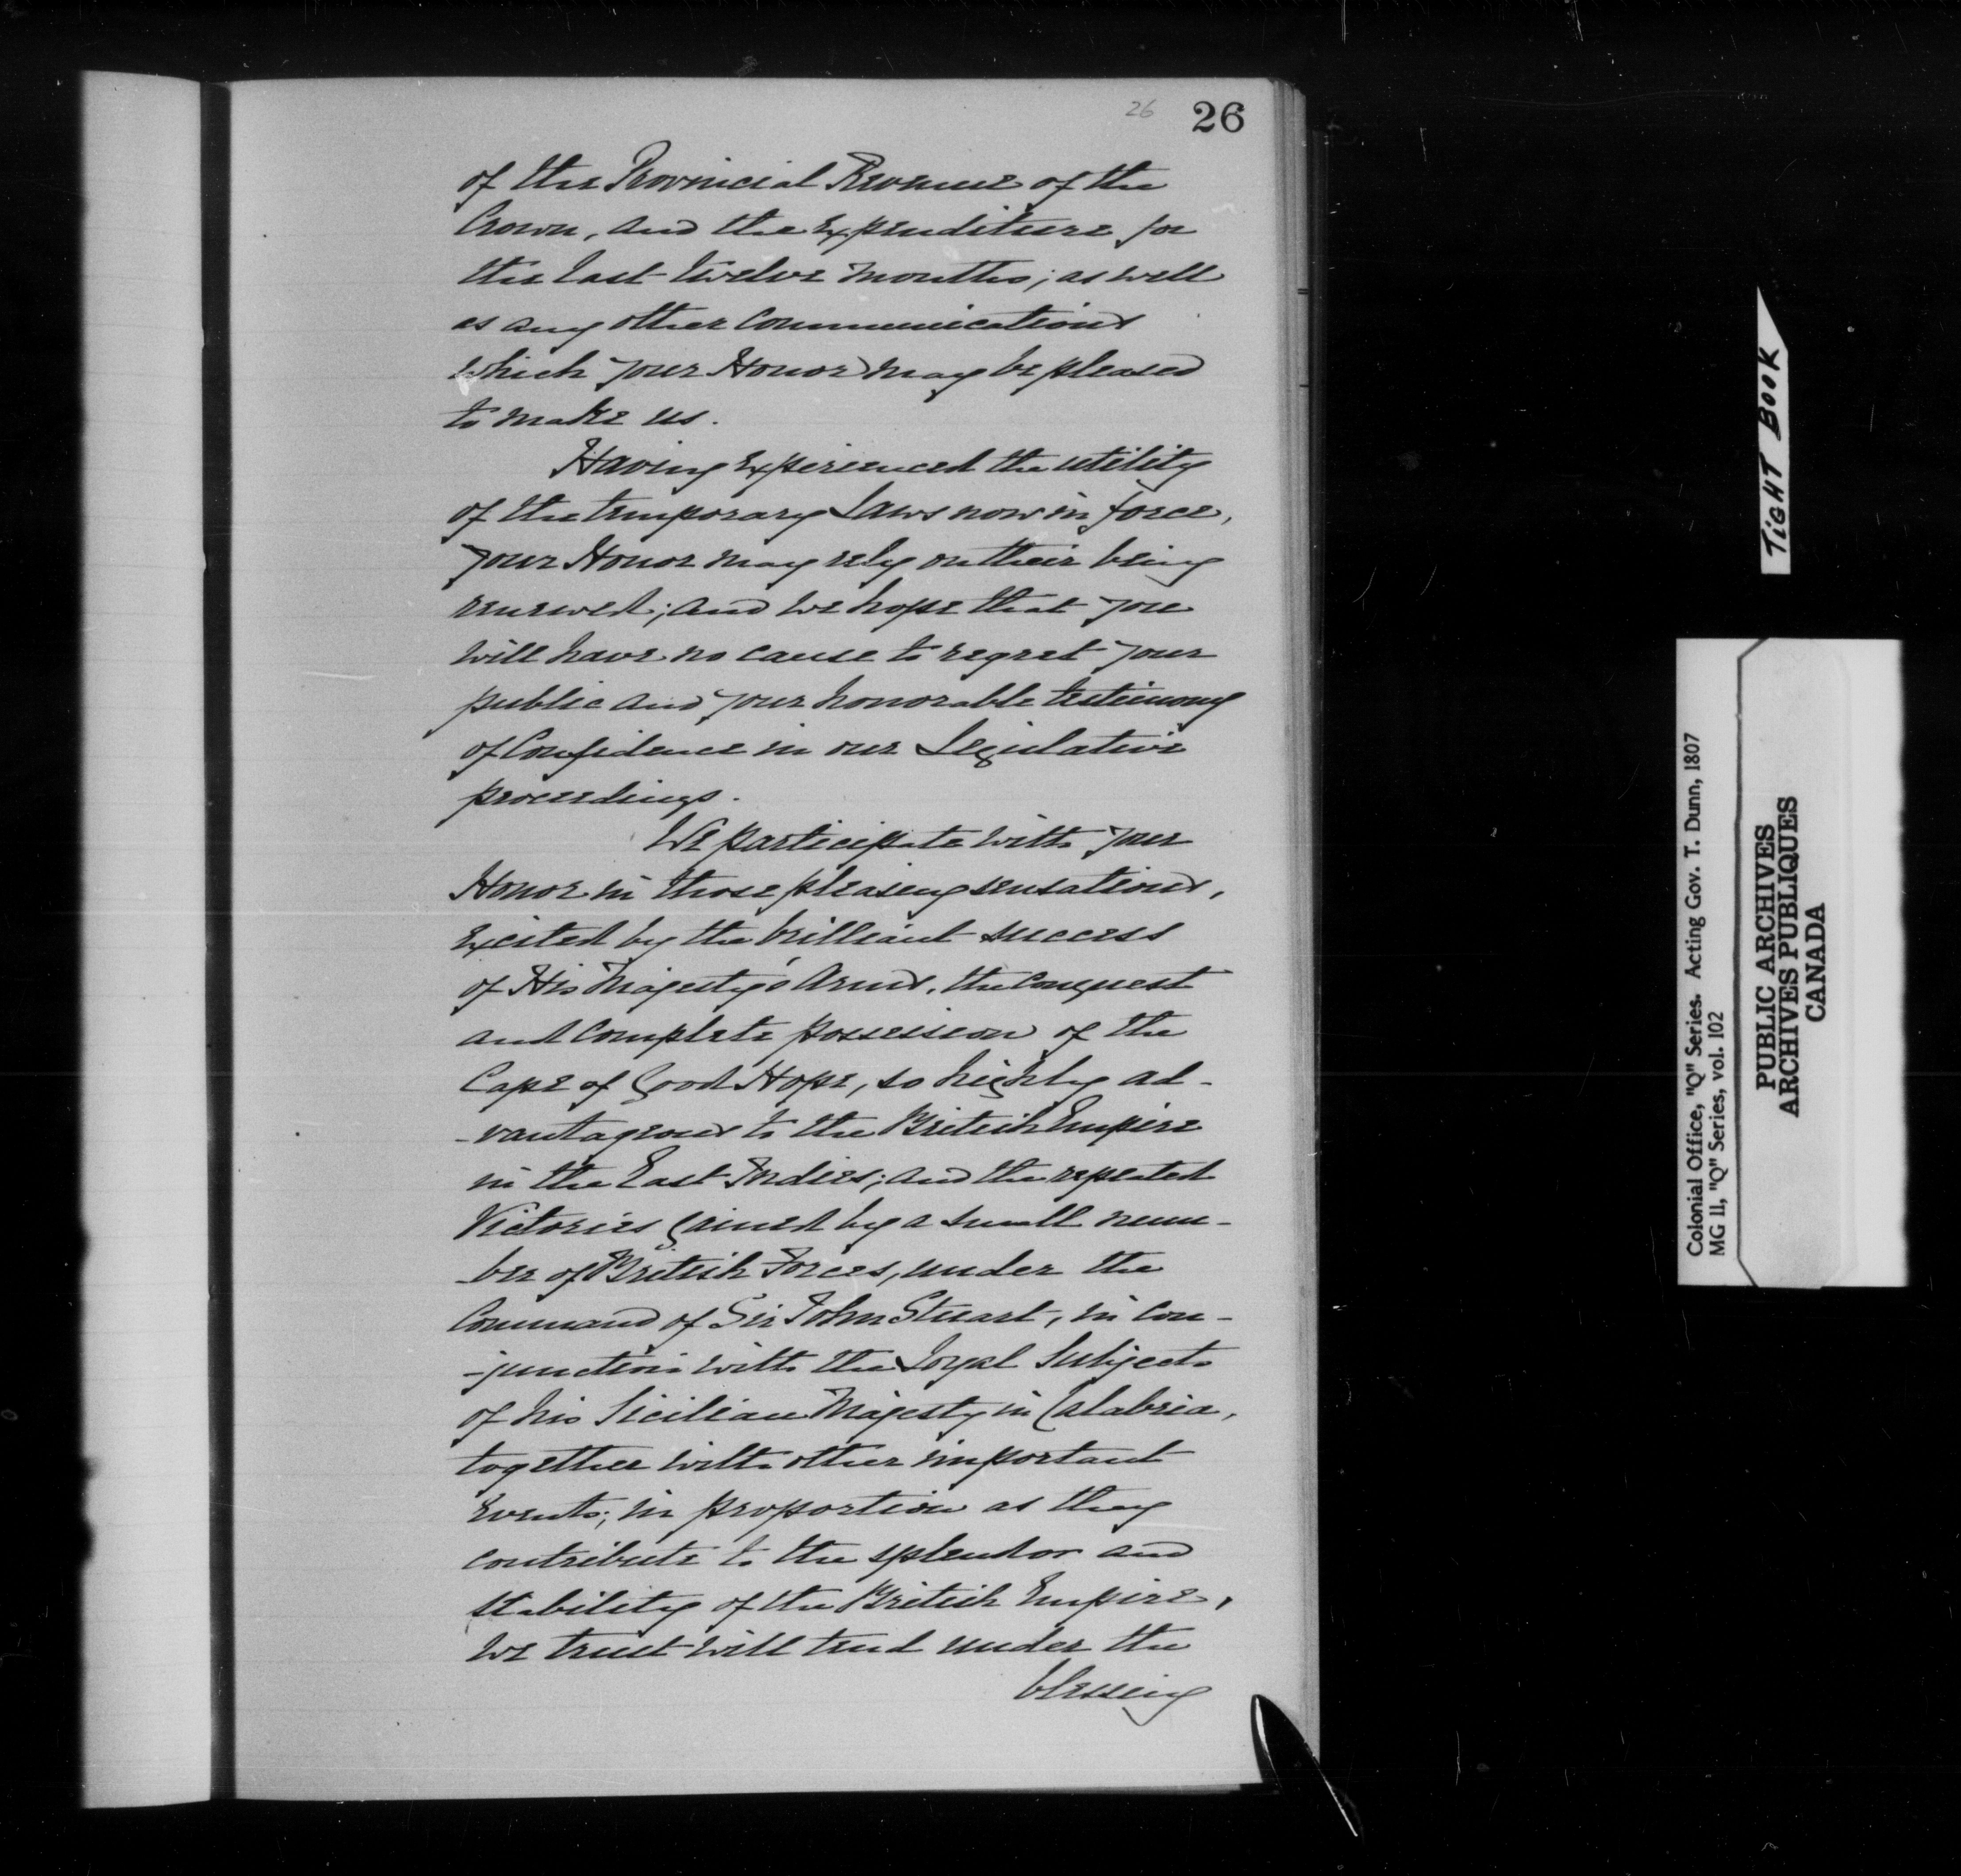 26 26
of the Provincial Revenue of the
Crown, and the Expenditure for
the last twelve months; as well
as any other Communications
which your Honor may be pleased
to make us.
Having Experienced the utility
of the temporary Laws now in force,
your Honor may rely on their being
renewed; and we hope that you
will have no cause to regret your
public and your honorable testimony
of Confidence in our Legislative
proceedings.
We participate with your
Honor in those pleasing sensations,
Excited by the brilliant success
of His Majesty's Arms, the Conquest
and Complete possession of the
Cape of Good Hope, so highly ad-
-vantageous to the British Empire
in the East Indies; and the repeated
Victories gained by a small num-
-ber of British Forces, under the
Command of Sir John Stuart, in con-
-junction with the Loyal Subjects
of his Sicilian Majesty in Calabria,
together with other important
Events; in proportion as they
contribute to the splendor and
stability of the British Empire,
we trust will tend under the
blessing
TIGHT BOOK
Colonial Office, "Q" Series. Acting Gov. T. Dunn, 1807
MG 11, "Q" Series, vol. 102
PUBLIC ARCHIVES
ARCHIVES PUBLIQUES
CANADA